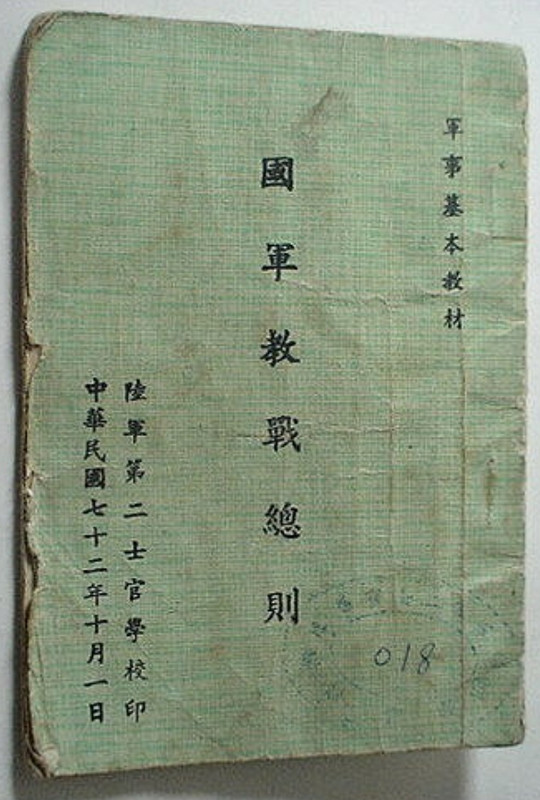 軍事基本教材
國軍教戰總則
陸軍第二士官學校印
中華民國七十二年十月一日
018